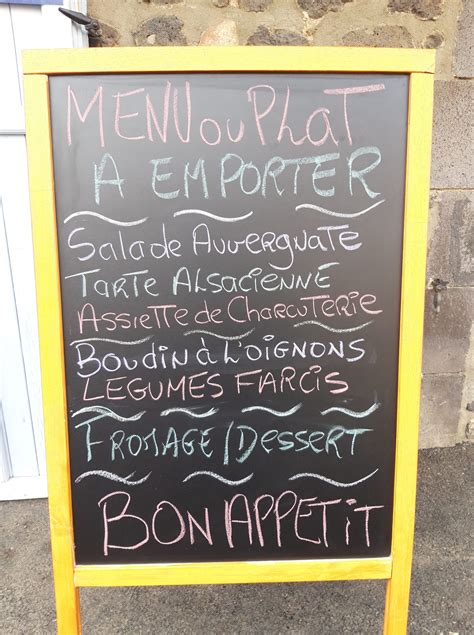 MENU ou PLaT
A EMPORTER
Salade Auvergnate
Tarte Alsacienne
Assiette de Charcuterie
Boudin à L'oignons
LEGUMES FARCIS
FROMAGE/DESSERT
BON APPETiT